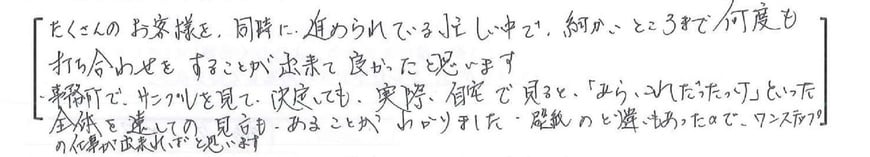 たくさんのお客様を、同時に、進められている忙しい中で、細かいところまで何度も
打ち合わせをすることが出来て良かったと思います
・事務所で、サンプルを見て、決定しても、実際、自宅で見ると、「あら、これだったっけ」といった
全体を通しての見方も、あることがわかりました・壁紙の 違いもあったので、ワンステップ
の仕事が出来ればと思います